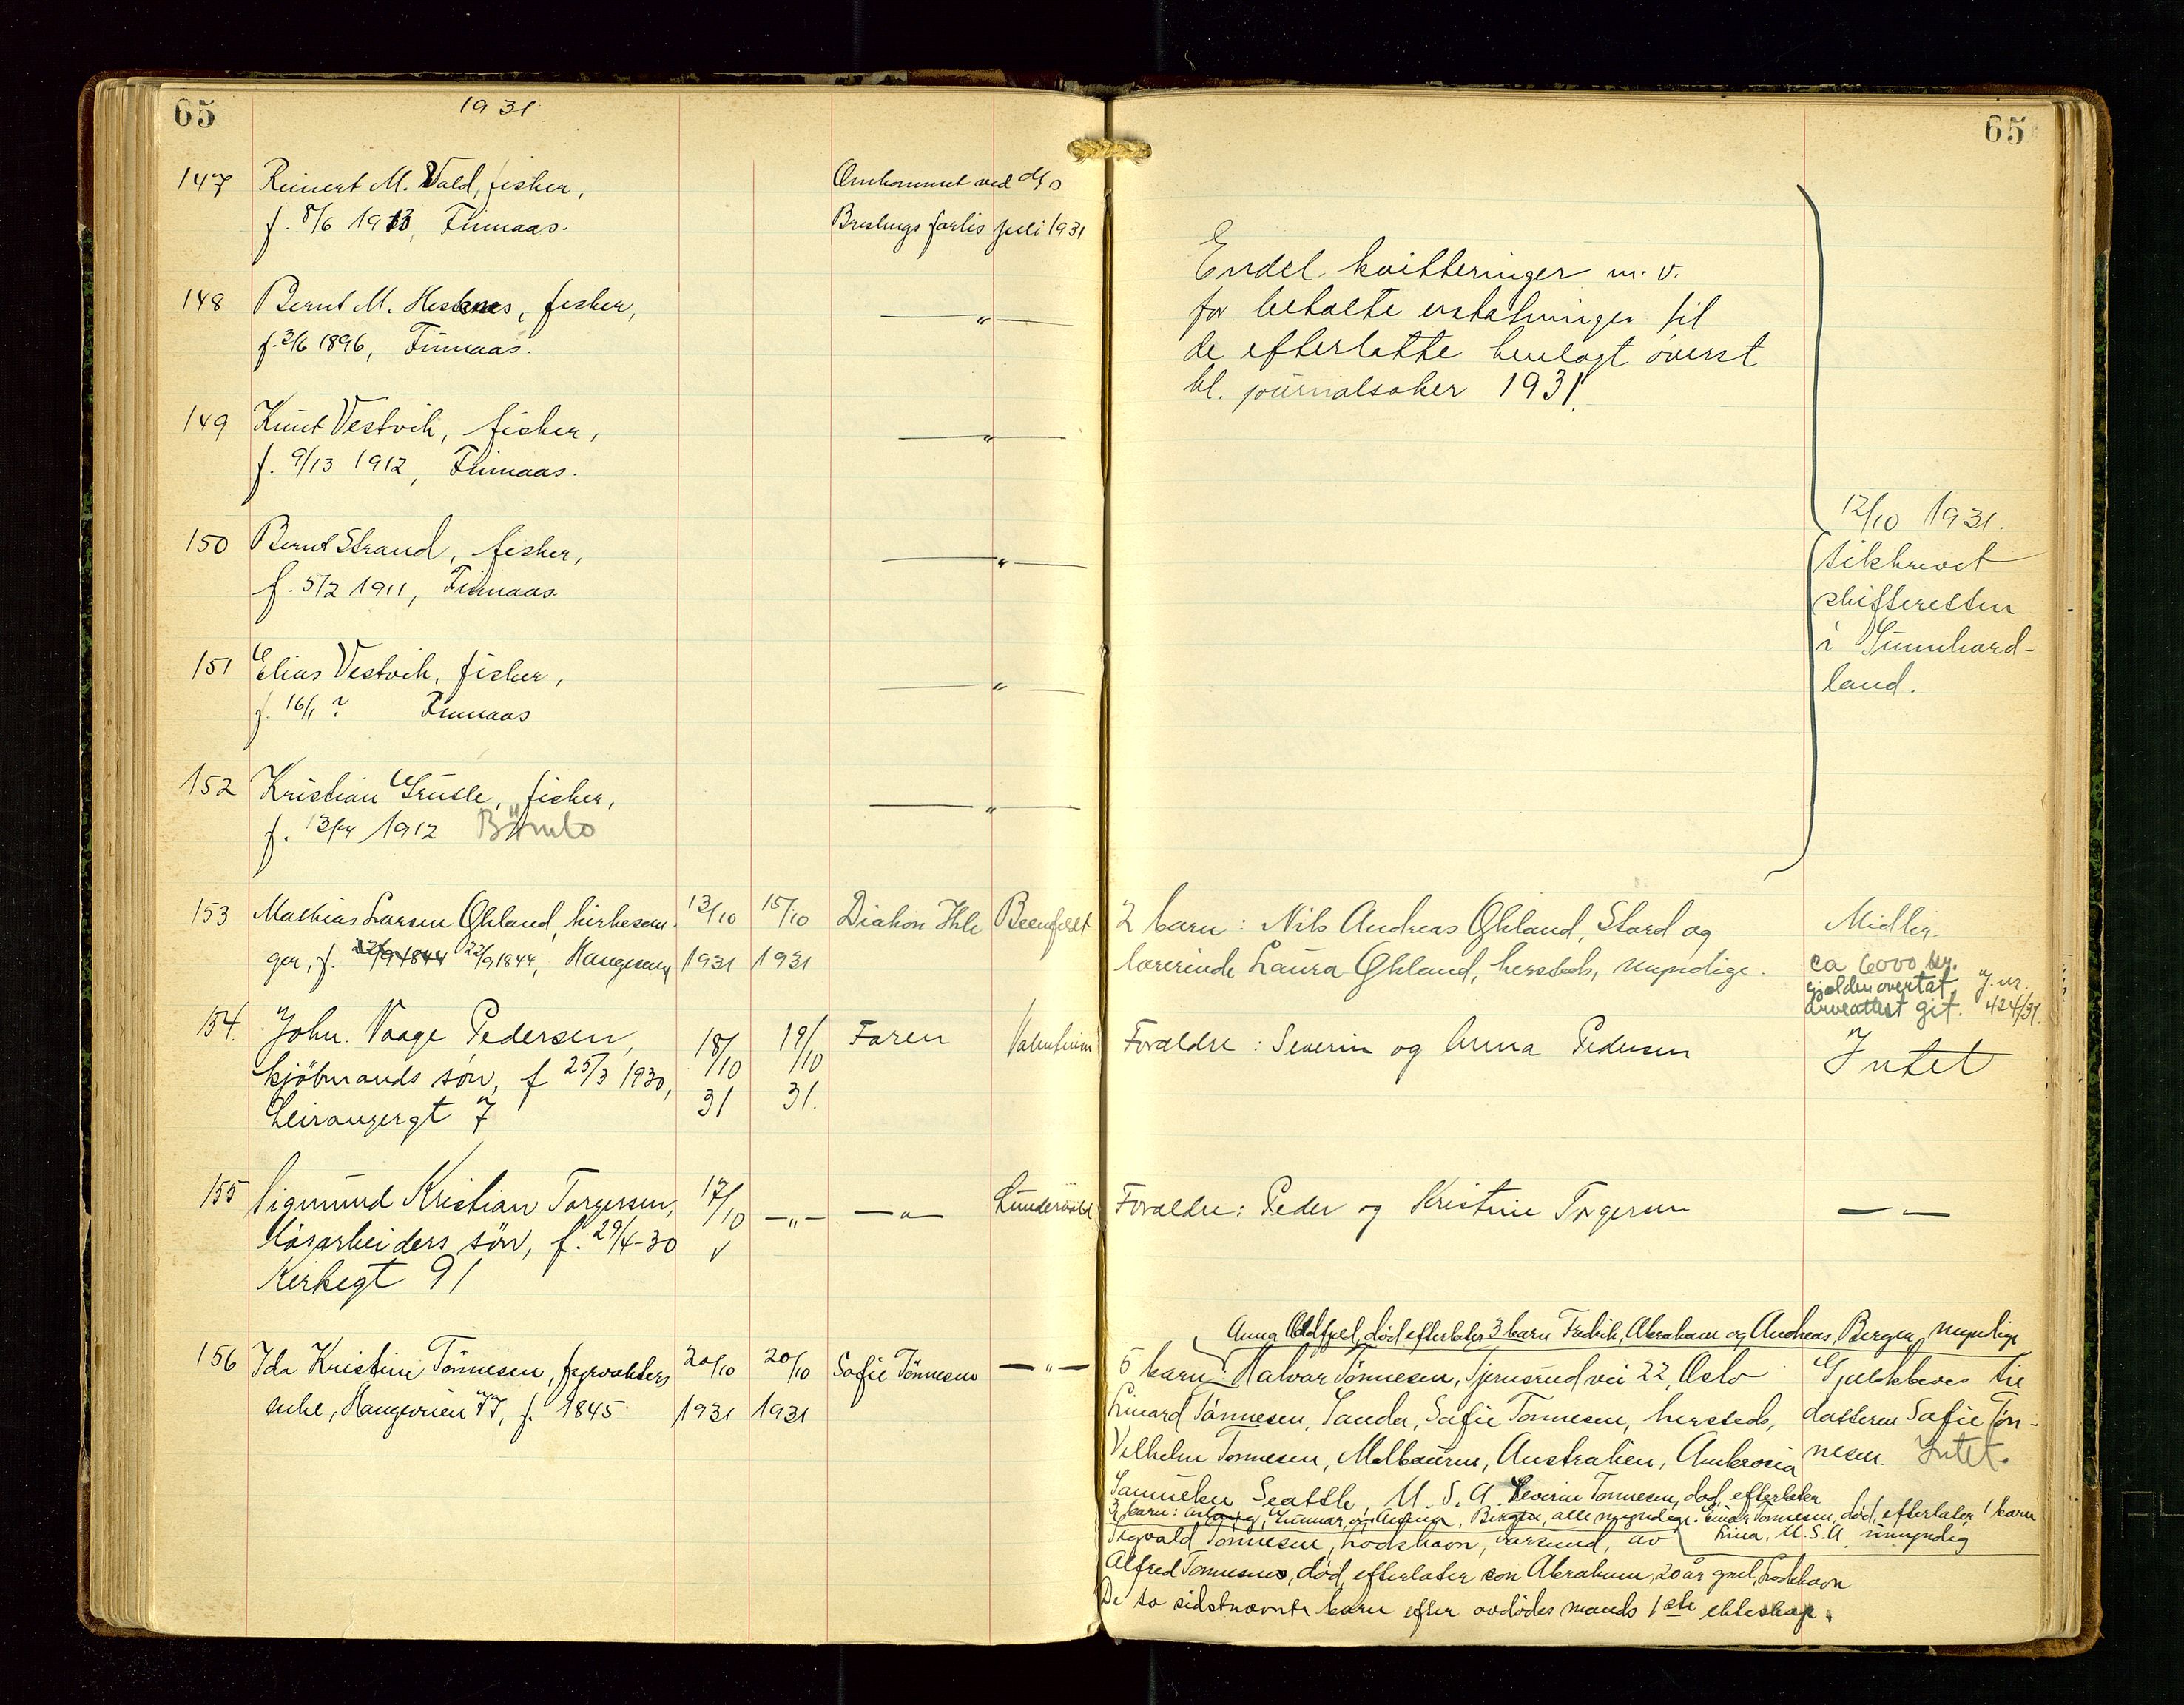 65
1931
147 Reinert M. Vald, fisher,
f. 8/6 1913, Finnaas.
Omkommet ved M/s
Brislings forlis juli 1931
148 Bernt M. Hesknes, fisker,
f. 2/6 1896, Finnaas.
— „ —
149 Knut Vestvik, fisker,
f. 9/13 1912, Finnaas.
— „ —
150 Bernt Strand, fisker,
f. 5/2 1911, Finnaas.
— „ —
151 Elias Vestvik, fisker,
f. 16/1 ? Finnaas
— „ —
152 Kristian Grutle, fisker,
f. 13/4 1912 Bömlo
— „ —
153 Mathias Larsen Økland, kirkesan- 13/10 15/10 Diakon Ihle
ger, f. 22/9 1844, Haugesund 1931 1931
154. John. Vaage Pedersen, 18/10 19/10 Faren
kjöbmands sön, f 25/3 1930, 31 31.
Leirangergt 7
155 Sigmund Kristian Torgersen, 17/10 — „ — — „ — Lundervold
Løsarbeiders sön, f. 29/4-30 v
Kirkegt 91
156 Ida Kristine Tönnesen, fyrvakters 20/10 20/10 Sofie Tönnesen — „ —
enke, 77, f. 1845 1931 1931
65
Endel kvitteringer m.v.
for betalte erstatninger til
de efterlatte henlagt överst
bl. journalsaker 1931.
12/10 1931.
tilskrevet
skifteretten
i Sunnhord-
land.
2 barn: Nils Andreas Økland, Stord og
lærerinde Laura Økland, hersteds, myndige.
Midler
ca 6000 kr.
gjælden overtat J.nr.
Arveattest git. 424/31.
Forældre: Severin og Anna Pedersen
Intet
Forældre: Peder og Kristine Torgersen
— —
Anna død efterlater 3 barn Fredrik, Abraham og Andreas, Bergen, myndige
5 barn: Halvar Tönnesen, vei 22, Oslo
Linard Tönnesen, Sanda, Sofie Tonnesen, hersteds,
Vilhelm Tonnesen, Melbourne, Australien, Ambrosia
Seattle, U.S.A. Severin Tonnesen, død, efterlater
3 barn: Gunnar og Bergen, alle myndige. Einar Tonnesen, død, efterlater 1 barn
U.S.A. umyndig
Sigvald Tönnesen, av
Alfred Tonnesen, död, efterlater son Abraham, 20 år gml,
De to sidstnævnte barn efter avdödes mands 1ste ekteskap.
Gjelsbrev til
datteren Sofie Tön-
nesen. Intet.